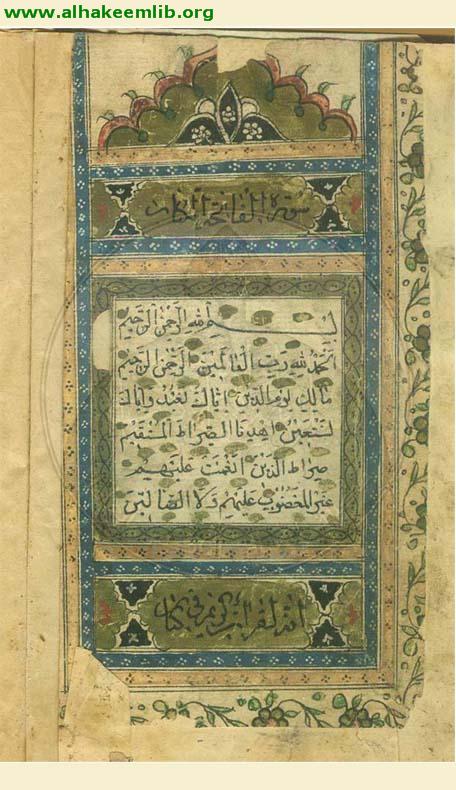 www.alhakeemlib.org
سورة الفاتحة الكتاب
بسم الله الرحمن الرحيم
الحمد لله رب العالمين الرحمن الرحيم
مالك يوم الدين اياك نعبد واياك
نستعين اهدنا الصراط المستقيم
صراط الذين انعمت عليهم
غير المغضوب عليهم ولا الضالين
انه لقران كريم في كتاب